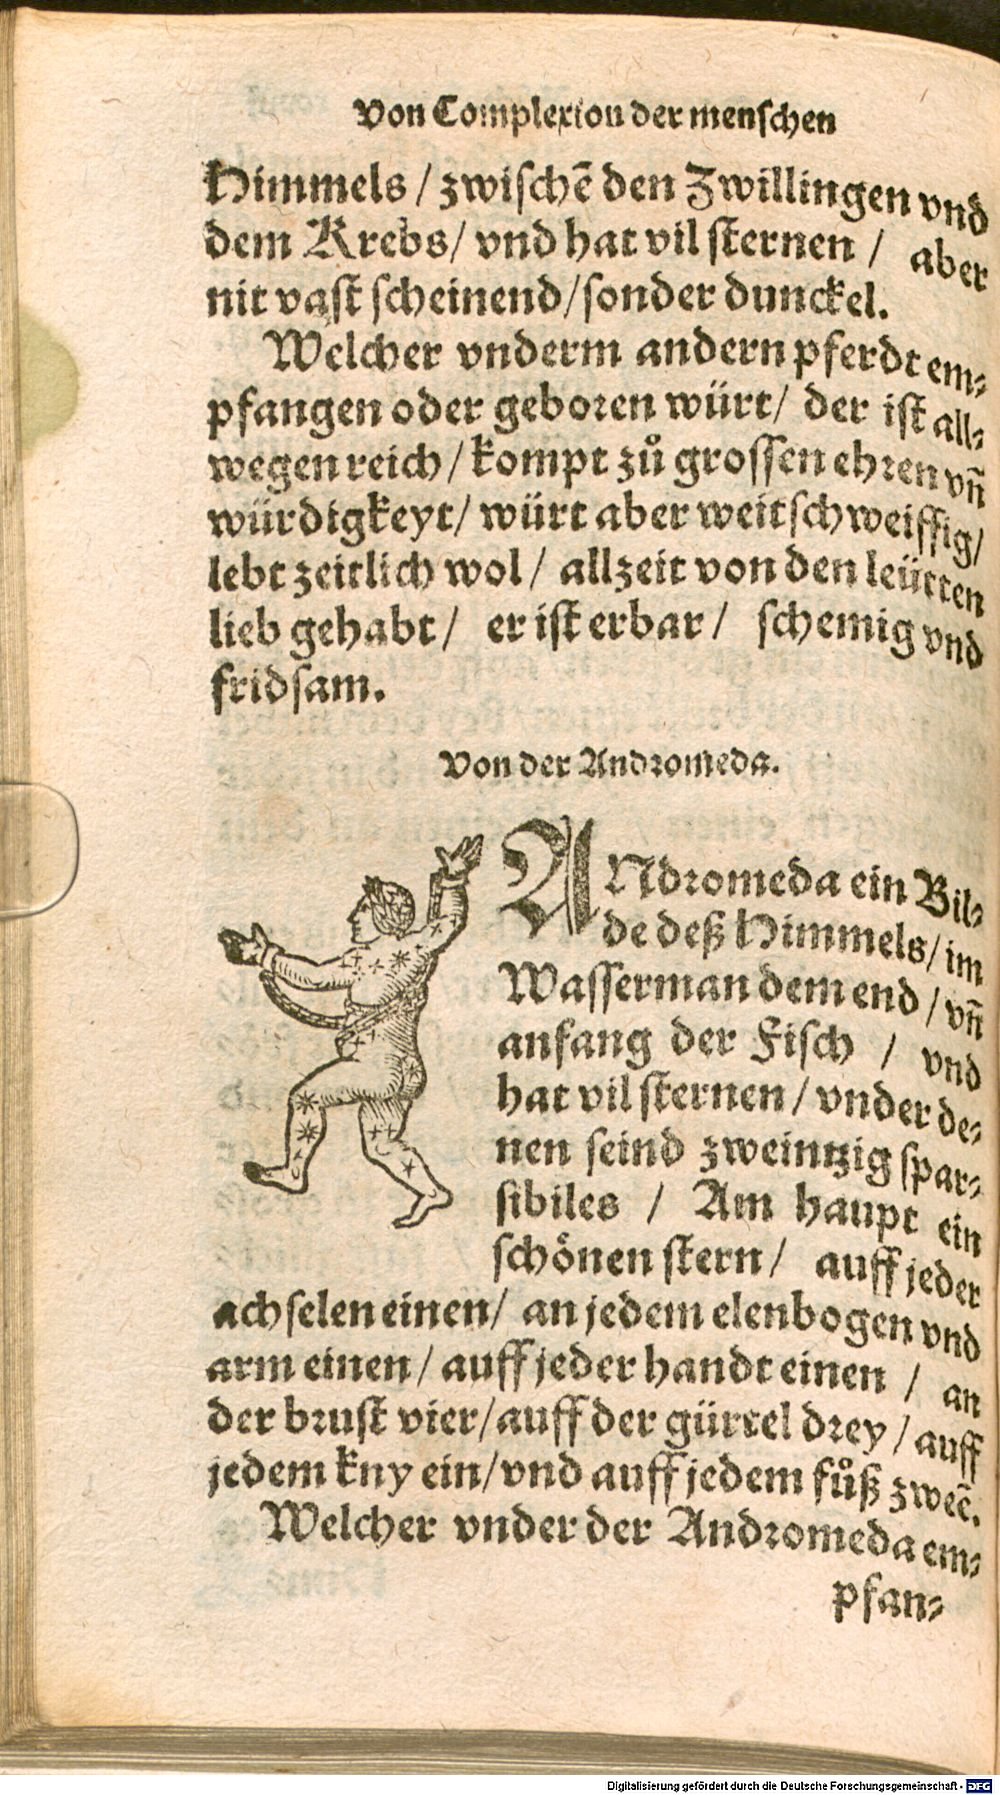 Von Complexion der menschen
Himmels / zwischē den Zwillingen vnd
dem Krebs / vnd hat vil sternen / aber
nit vast scheinend / sonder dunckel.
Welcher vnderm andern pferdt em⸗
pfangen oder geboren würt / der ist all⸗
wegen reich / kompt zů grossen ehren vñ
würdigkeyt / würt aber weitschweiffig /
lebt zeitlich wol / allzeit von den leütten
lieb gehabt / er ist erbar / schemig vnd
fridsam.
Von der Andromeda.
ANdromeda ein Bil⸗
de deß Himmels / im
Wasserman dem end / vñ
anfang der Fisch / vnd
hat vil sternen / vnder de⸗
nen seind zweintzig spar⸗
sibiles / Am haupt ein
schönen stern / auff jeder
achselen einen / an jedem elenbogen vnd
arm einen / auff jeder handt einen / an
der brust vier / auff der gürtel drey / auff
jedem kny ein / vnd auff jedem fůß zweē.
Welcher vnder der Andromeda em⸗
pfan⸗
Digitalisierung gefördert durch die Deutsche Forschungsgemeinschaft - DFG